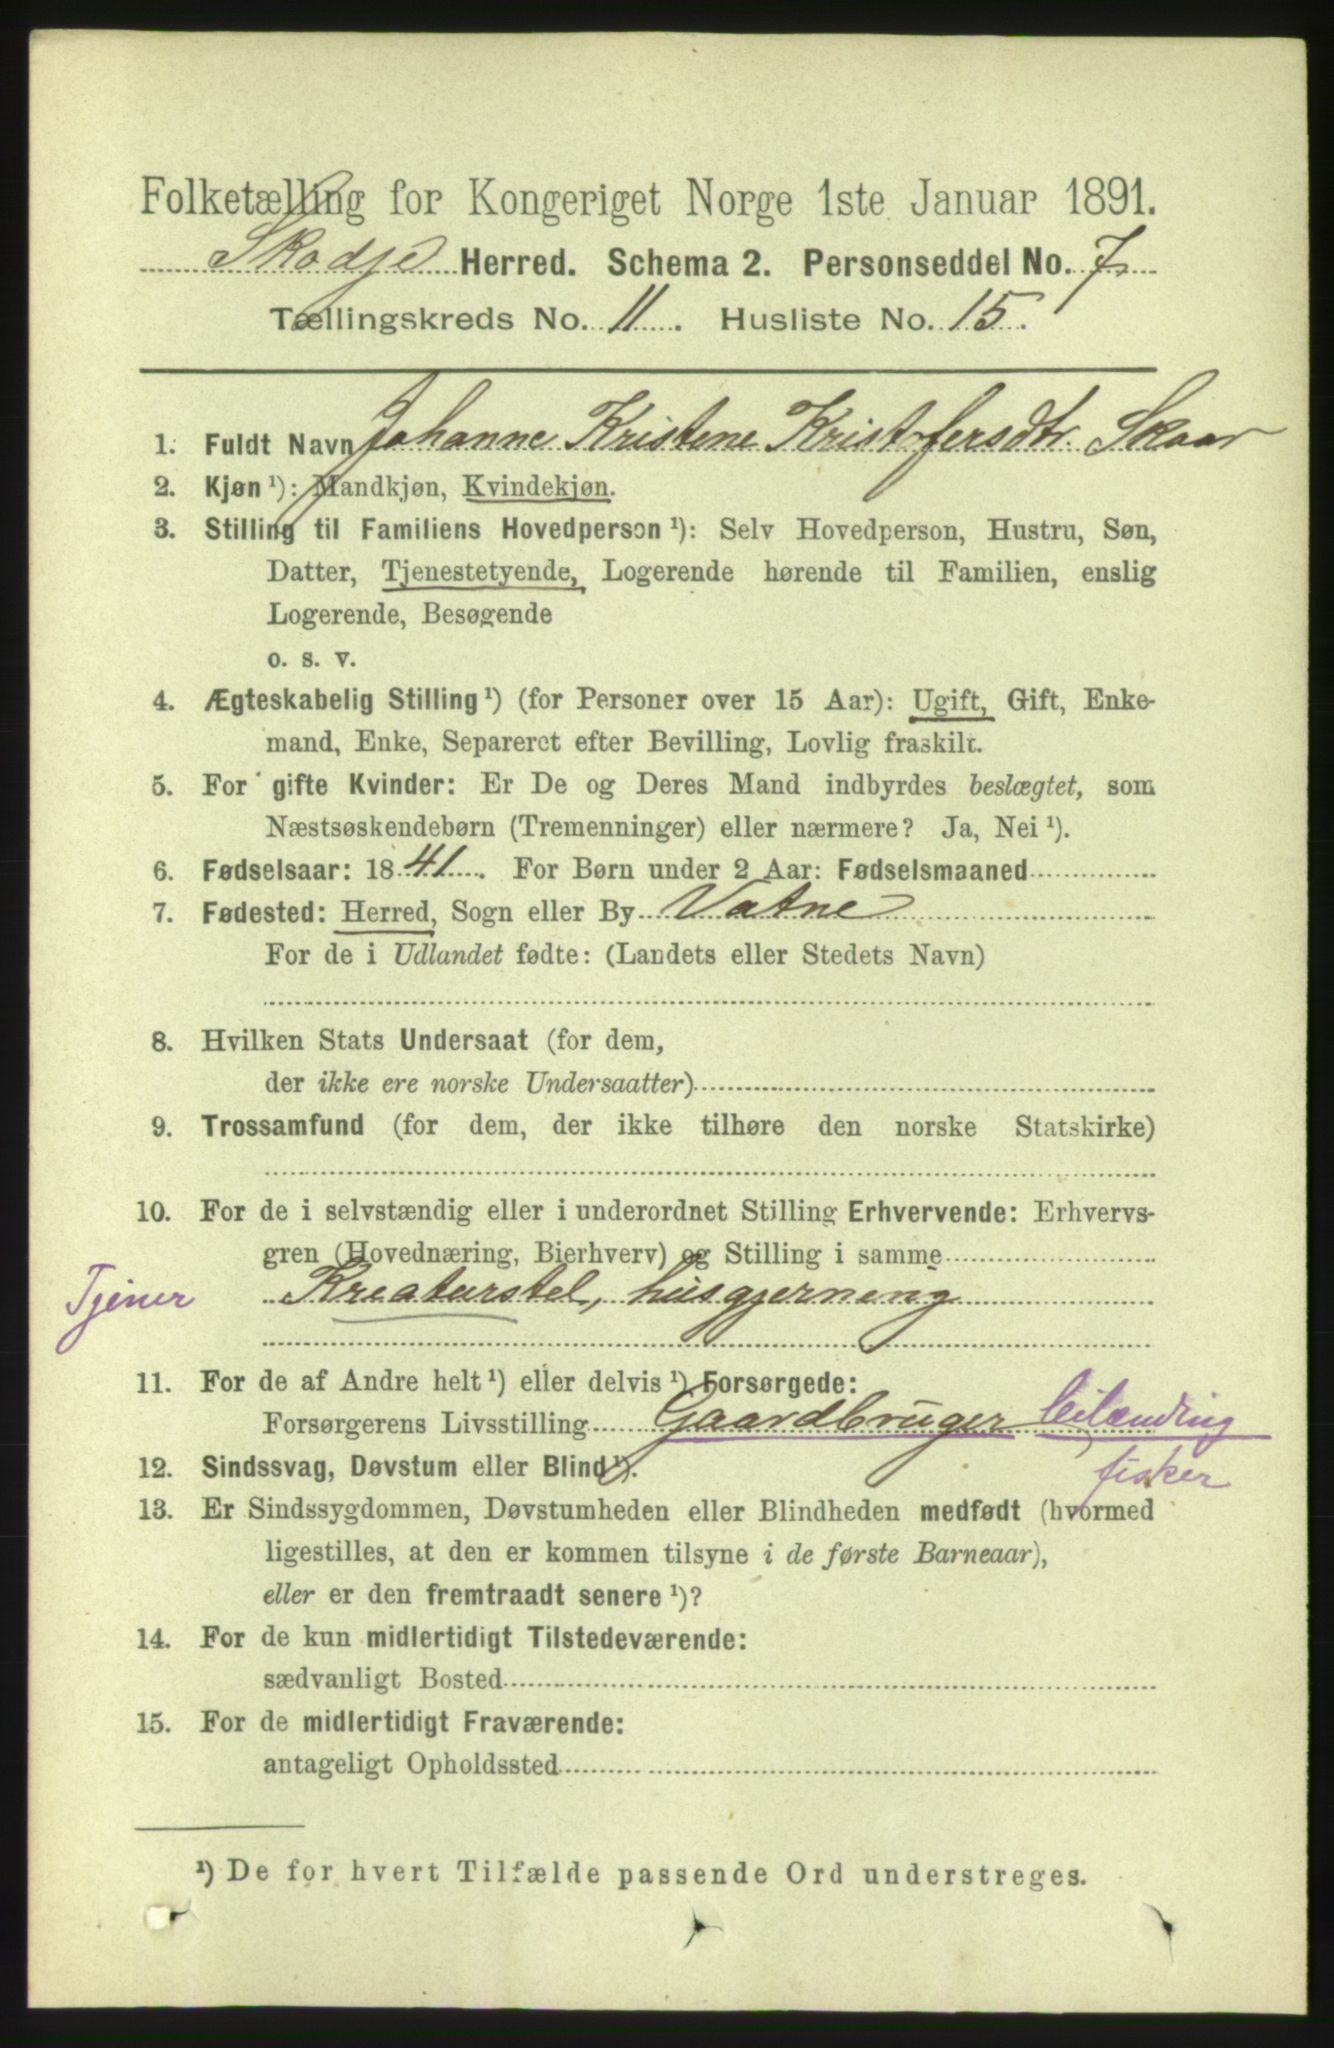 Folketælling for Kongeriget Norge 1ste Januar 1891.
Skodje Herred. Schema 2. Personseddel No. 7
Tællingskreds No. 11. Husliste No. 15.
1. Fuldt Navn Johanne Kristene Kristofersdtr Skaar
2. Kjøn ¹): Mandkjøn, Kvindekjøn.
3. Stilling til Familiens Hovedperson ¹): Selv Hovedperson, Hustru, Søn,
Datter, Tjenestetyende, Logerende hørende til Familien, enslig
Logerende, Besøgende
o. s. v.
4. Ægteskabelig Stilling ¹) (for Personer over 15 Aar): Ugift, Gift, Enke-
mand, Enke, Separeret efter Bevilling, Lovlig fraskilt.
5. For gifte Kvinder: Er De og Deres Mand indbyrdes beslægtet, som
Næstsøskendebørn (Tremenninger) eller nærmere? Ja, Nei ¹).
6. Fødselsaar: 1841. For Børn under 2 Aar: Fødselsmaaned
7. Fødested: Herred, Sogn eller By Vatne
For de i Udlandet fødte: (Landets eller Stedets Navn)
8. Hvilken Stats Undersaat (for dem,
der ikke ere norske Undersaatter)
9. Trossamfund (for dem, der ikke tilhøre den norske Statskirke)
10. For de i selvstændig eller i underordnet Stilling Erhvervende: Erhvervs-
gren (Hovednæring, Bierhverv) og Stilling i samme
Tjener Kreaturstel, husgjerneng
11. For de af Andre helt ¹) eller delvis ¹) Forsørgede:
Forsørgerens Livsstilling Gaardbruger leilænding
fisker
12. Sindssvag, Døvstum eller Blind ¹).
13. Er Sindssygdommen, Døvstumheden eller Blindheden medfødt (hvormed
ligestilles, at den er kommen tilsyne i de første Barneaar),
eller er den fremtraadt senere ¹)?
14. For de kun midlertidigt Tilstedeværende:
sædvanligt Bosted
15. For de midlertidigt Fraværende:
antageligt Opholdssted
¹) De for hvert Tilfælde passende Ord understreges.